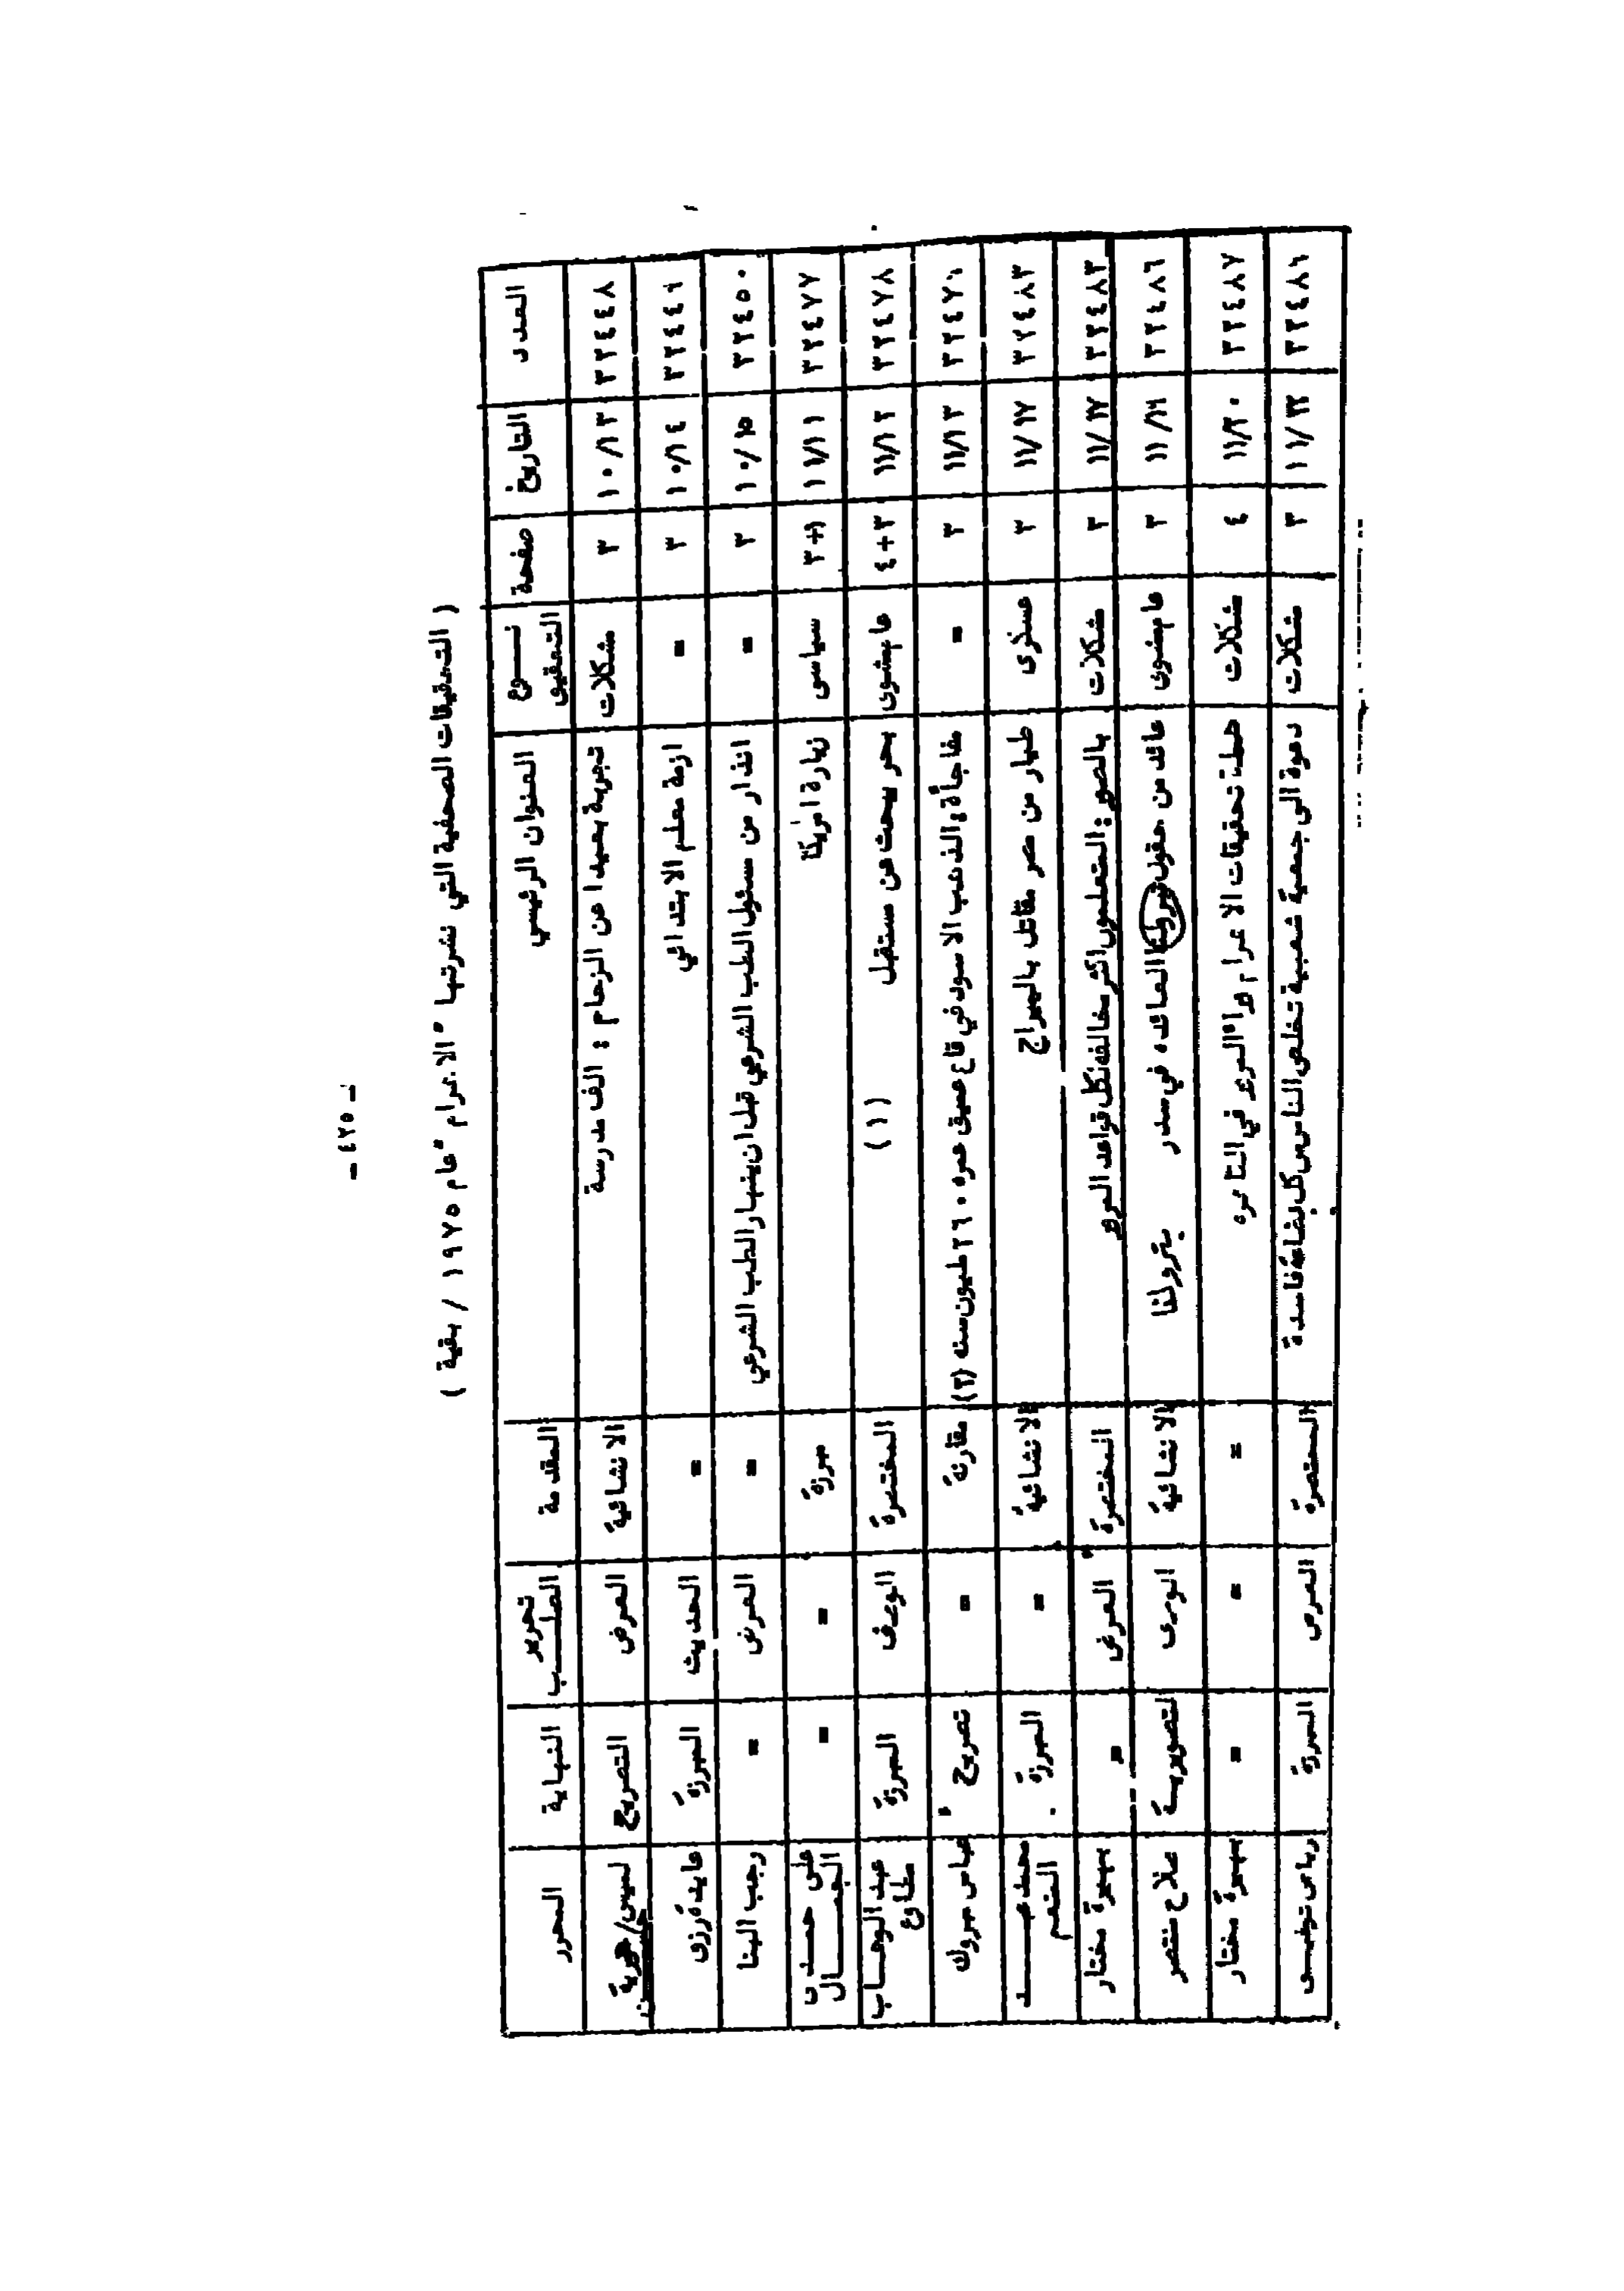 ـ ٤٢٥ ـ
( التحقيقات الصحفية التي نشرتها " الاهرام " عام ١٩٧٥ / بقية )
العدد التاريخ صفحة نــوع التحقيق العنوان الرئيسي المقدمة تحرير الصلــب النهاية المحرر
٣٢٤٤٨ ١٠/١٣ ٣ شكلات تجربة بعيدا عن الزحام : الف مدرسة الانشائية العرض التصريح لميس/هدية حسن
٣٢٤٤٩ ١٠/١٤ ٣ = ازمة معلم الابتدائي = الحديث المبرزة عايدة رزق
٣٢٤٥٠ ١٠/١٥ ٣ = انذار من مسئول الطب الشرعي قبل ان ينهار الطب الشرعي = العرض = رجب البنا
٣٢٤٧٧ ١١/١١ ٣+٩ سياسى زيارة امريكا مبرزة = = على حمدى الجمــال
٣٢٤٧٨ ١١/١٢ ٣+٤ عام بحر يبحث عن مستقبل (١) المختصرة الوصف المبرزة عبد الوهــاب مطاوع
٣٢٤٧٩ ١١/١٣ ٣ = مفاجأة : الذهب الاسود في قاع عميق عمره ٢٦٠ مليون سنه (٢) مقارنة = تصريح عباس مبروك
٣٢٤٨٣ ١١/١٧ ٣ عسكرى طيار من مصر مقاتل بالميراج الانشائية = المبرزة محمد عبــد المنعم
٣٢٤٨٣ ١١/١٧ ٣ شكلات بالصور : المتعلمون اكثر مخالفه لكل قواعد المرور المختصرة العرض = بهيرة مختار
٣٢٤٨٦ ١١/١٩ ٣ عام عائد من حقول بترولنا العائده في سدر بترولنا الانشائية تصويريــة صلاح منتصر
٣٢٤٨٧ ١١/٢٠ ٤ شكلات حملة تحقيقات الاهرام وراء المرور في القاهره = = = بهيرة مختار
٣٢٤٨٩ ١١/٢٢ ٣ شكلات دعوة الى جمعية شعبية تخلص الناس من كل بضاعة فاسدة المختصرة العرض المبرزة